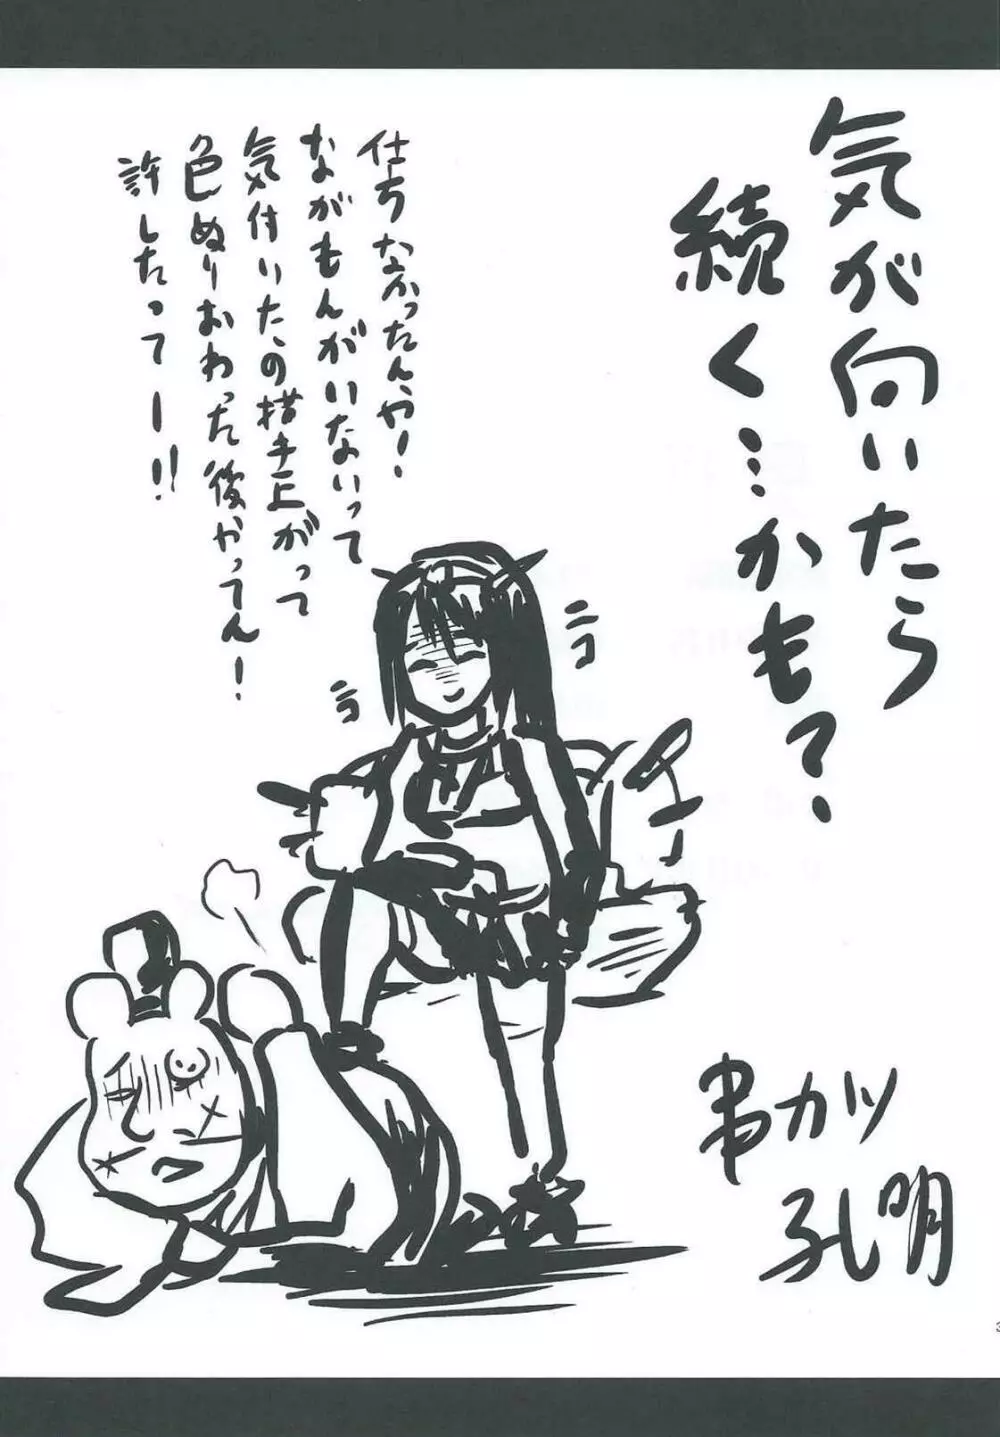 気が向いたら
続く…かも？
仕ちなかったんや！
ながもんがいないって
気付いたの描き上がって
色ぬりおわった後やってん！
許したってー!!
ニコ
ニコ
串カツ
孔明
3